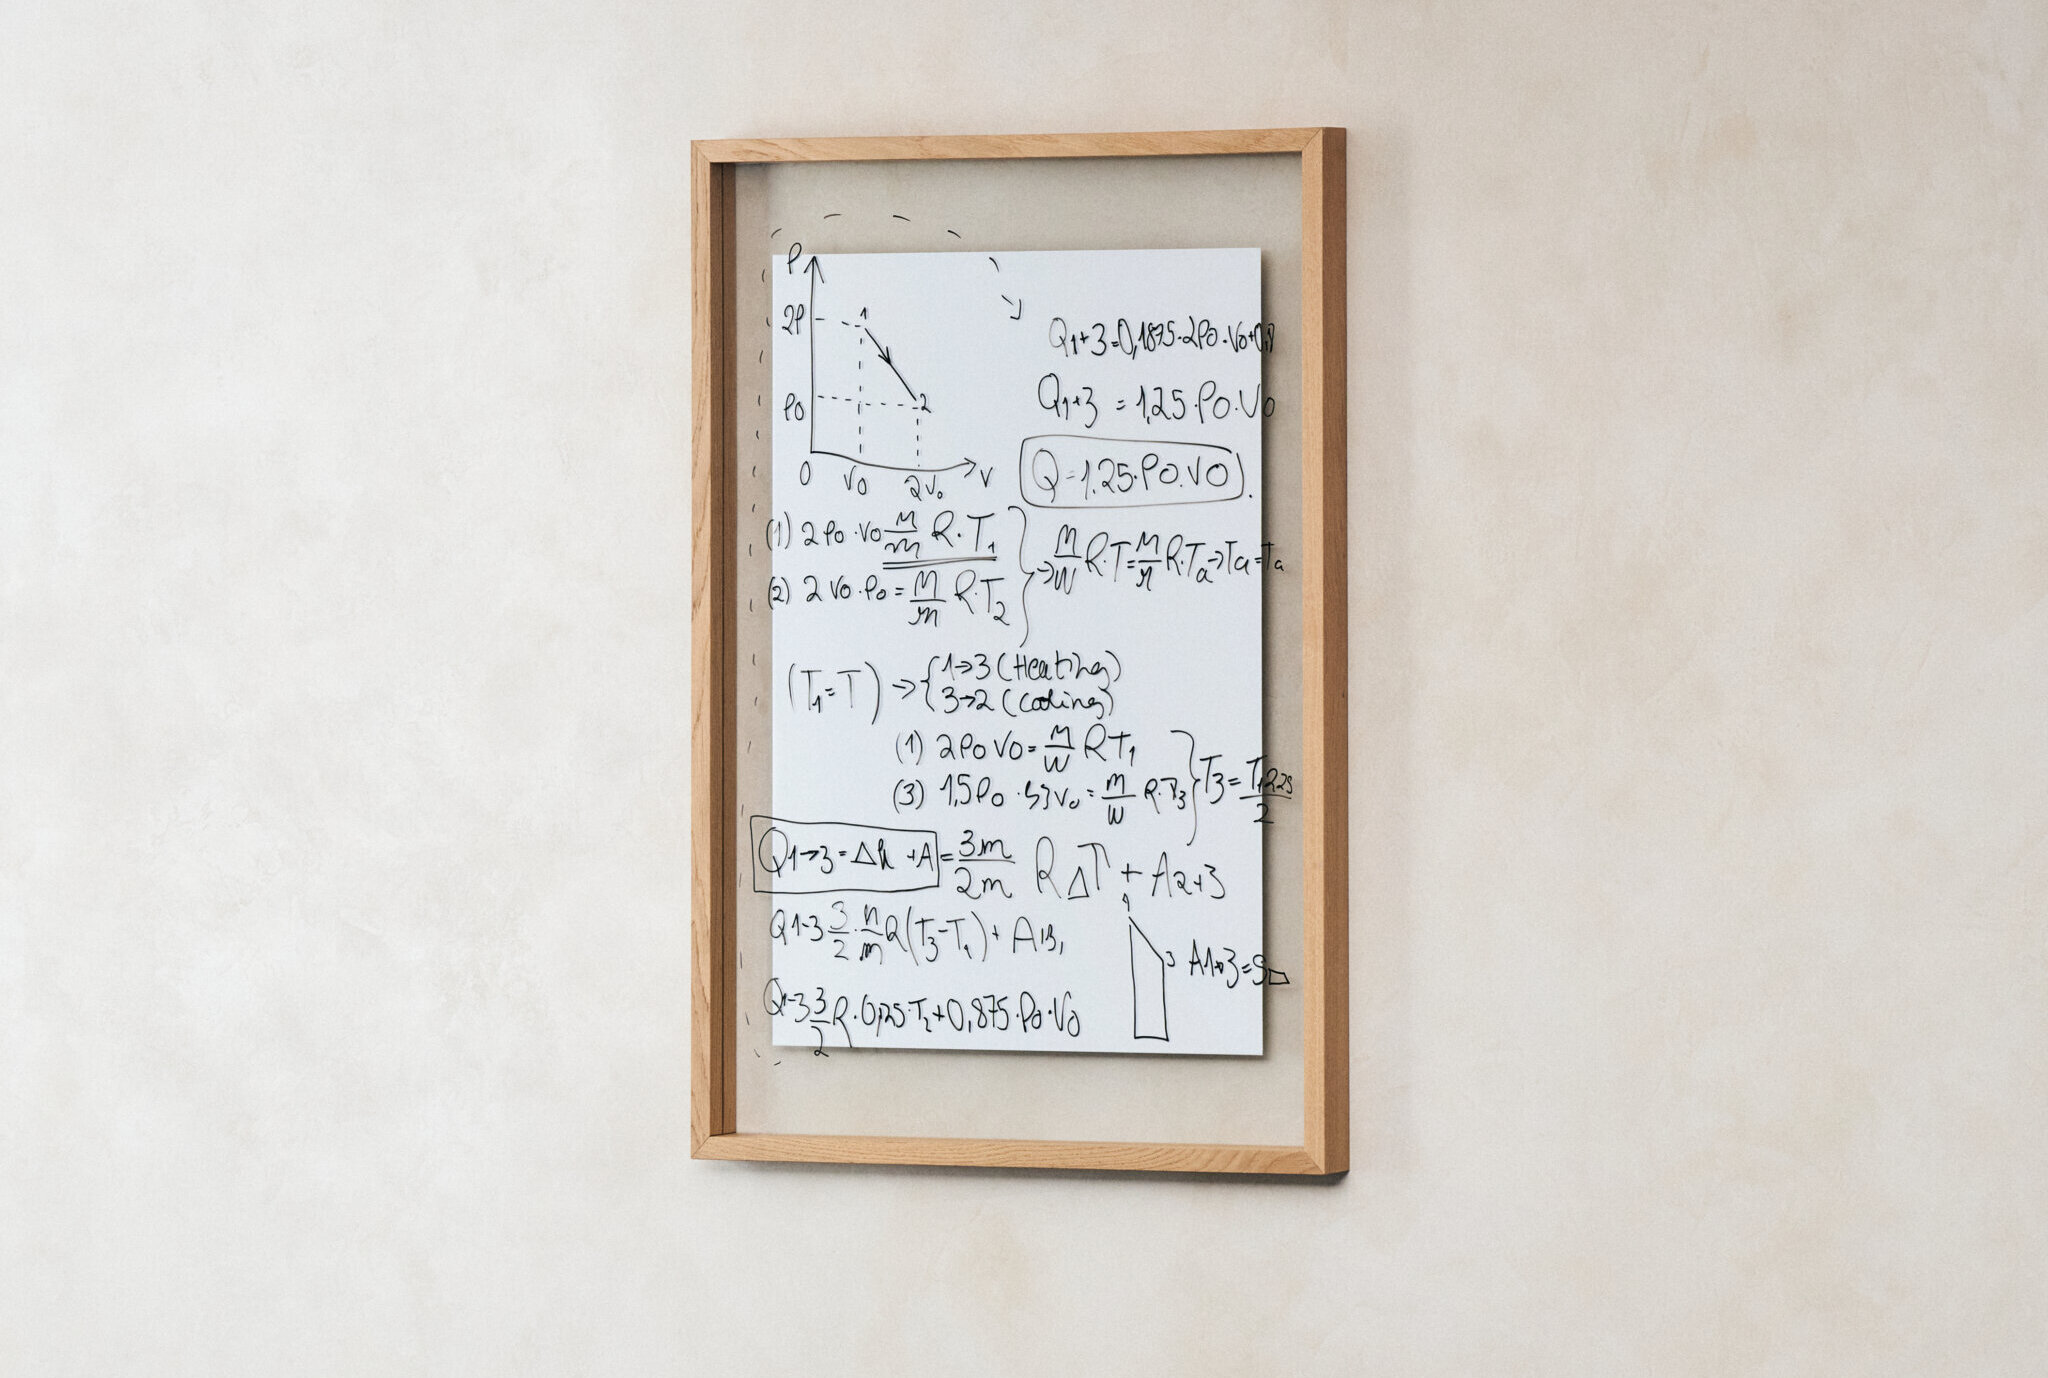 P
2P
1
P0
2
0 V0 2V0 V
Q1+3=0,1875·2P0·V0+0,8
Q1+3 = 1,25·P0·V0
Q=1,25·P0·V0.
(1) 2P0·V0 M/m R·T1
(2) 2V0·P0 = M/m R·T2
→ M/W R·T = M/M R·Ta → Ta = Ta
(T1=T) → { 1→3 (Heating)
3→2 (Cooling)
(1) 2P0V0 = M/W RT1
(3) 1,5P0 · V0 = m/W R·T3
T3 = T1 2,25/2
Q1→3 = Δu + A = 3m/2m RΔT + A2+3
Q1-3 3/2 · n/m R(T3-T1) + A13,
1
3
A1→3=S
Q1-3 3/2 R·0,25·T2+0,875·P0·V0